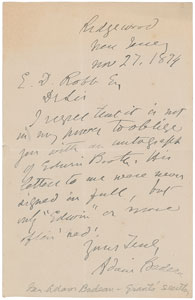 Ridgewood
New Jersey
Nov 27, 1894
E. D. Robb Esq
Dr Sir
I regret that it is not
in my power to oblige
you with an autograph
of Edwin Booth. His
letters to me were never
signed in full, but
only "Edwin" or
Yours Truly
Adam Badeau
Gen Adam Badeau - Grant's